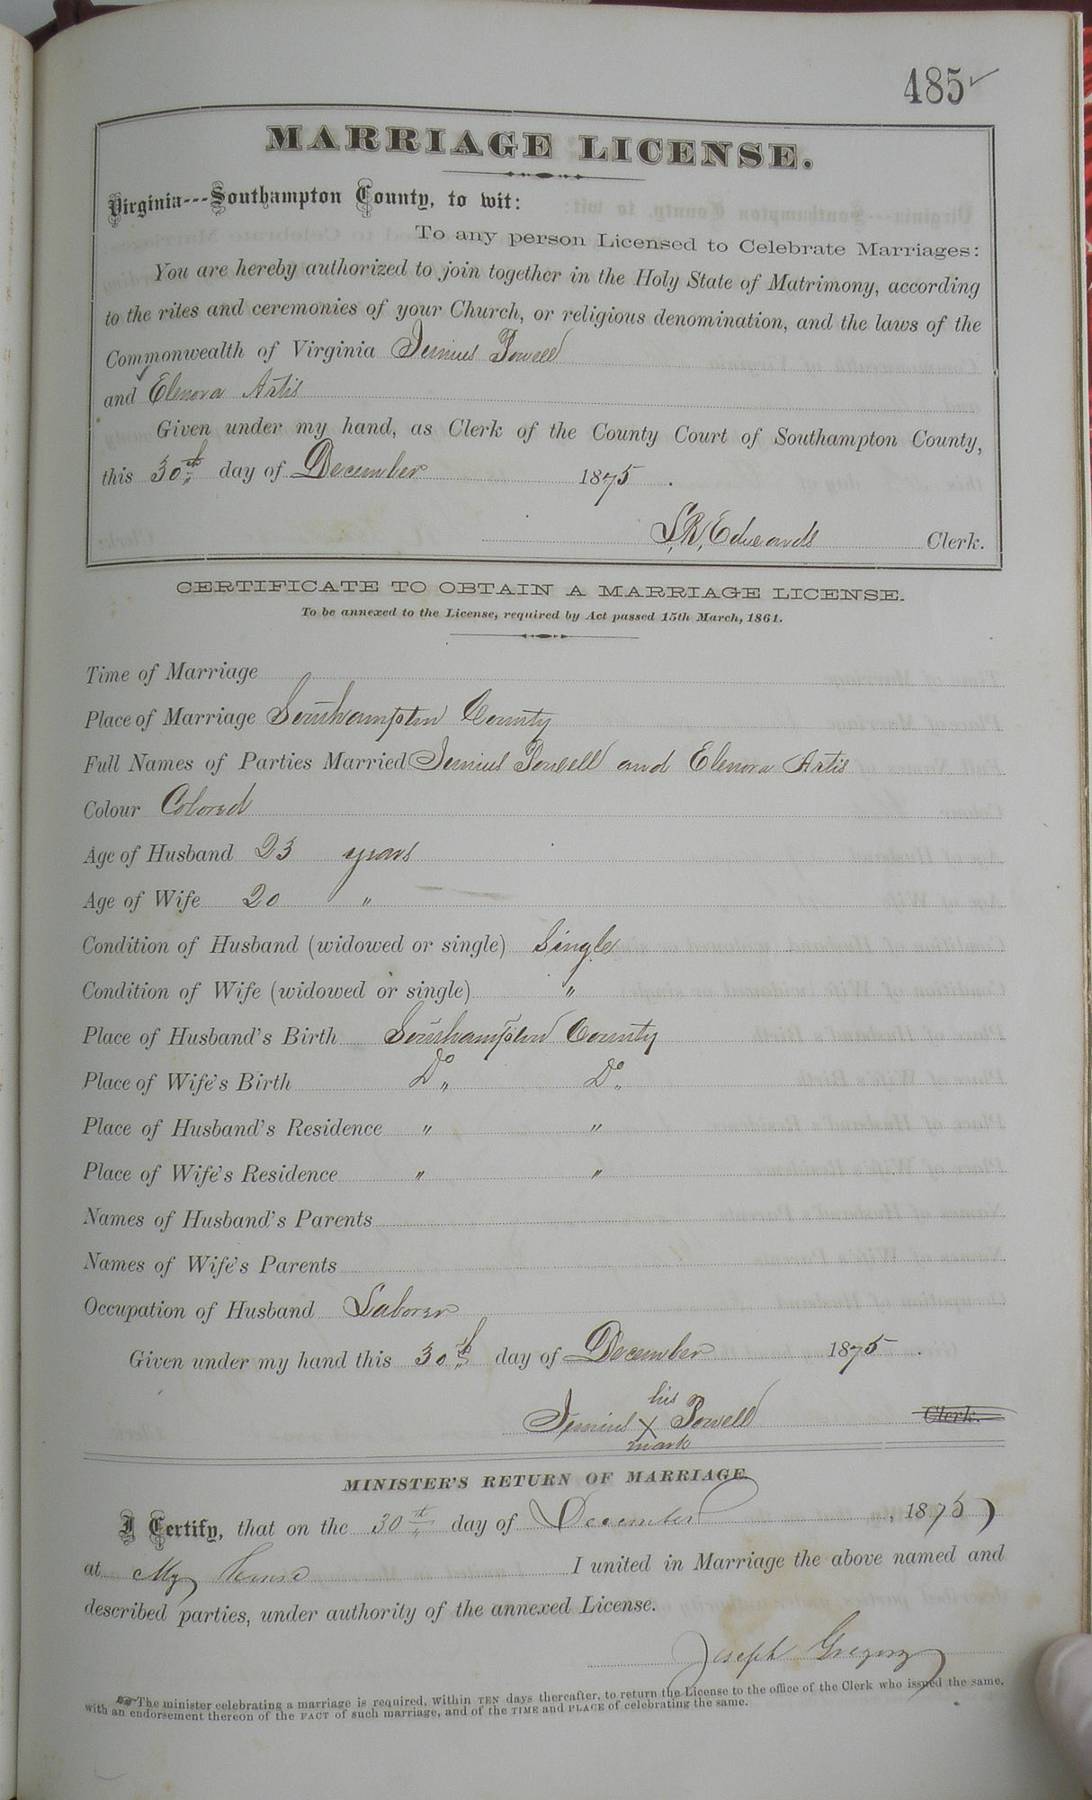 485✓
MARRIAGE LICENSE.
Virginia---Southampton County, to wit:
To any person Licensed to Celebrate Marriages:
You are hereby authorized to join together in the Holy State of Matrimony, according
to the rites and ceremonies of your Church, or religious denomination, and the laws of the
Commonwealth of Virginia Junius Powell
and Elenora Artis
Given under my hand, as Clerk of the County Court of Southampton County,
this 30th day of December 1875.
S.R. Edwards Clerk.
CERTIFICATE TO OBTAIN A MARRIAGE LICENSE.
To be annexed to the License, required by Act passed 15th March, 1861.
Time of Marriage
Place of Marriage Southampton County
Full Names of Parties Married Junius Powell and Elenora Artis
Colour Colored
Age of Husband 23 years
Age of Wife 20 "
Condition of Husband (widowed or single) Single
Condition of Wife (widowed or single) "
Place of Husband's Birth Southampton County
Place of Wife's Birth Do Do
Place of Husband's Residence " "
Place of Wife's Residence " "
Names of Husband's Parents
Names of Wife's Parents
Occupation of Husband Laborer
Given under my hand this 30th day of December 1875.
his
Junius X Powell Clerk.
mark
MINISTER'S RETURN OF MARRIAGE
I Certify, that on the 30th day of December, 1875)
at My house I united in Marriage the above named and
described parties, under authority of the annexed License.
Joseph Gregory
The minister celebrating a marriage is required, within TEN days thereafter, to return the License to the office of the Clerk who issued the same,
with an endorsement thereon of the FACT of such marriage, and of the TIME and PLACE of celebrating the same.